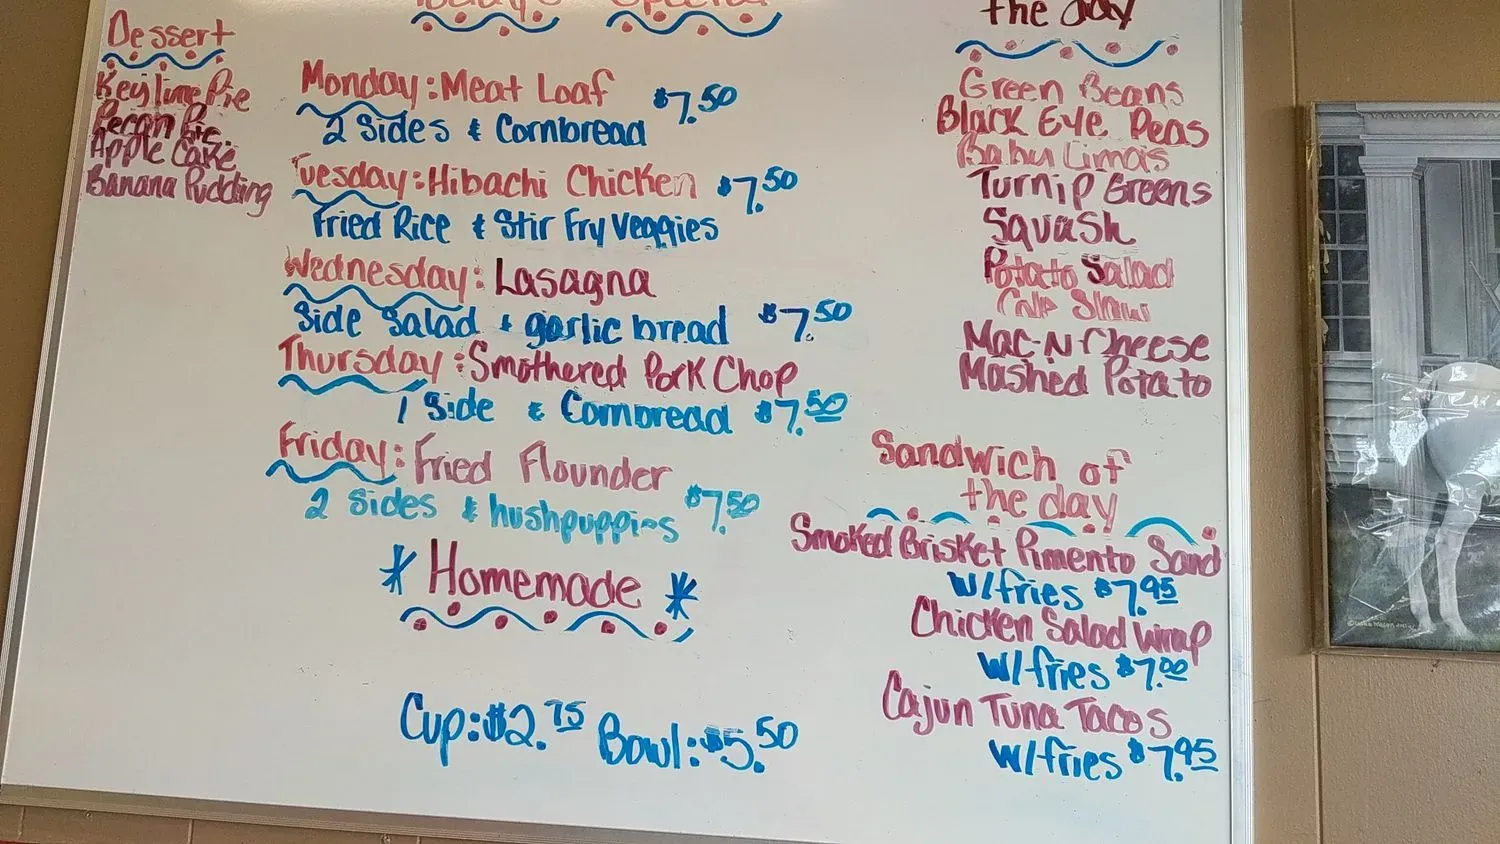 Dessert
Key lime Pie
Pecan Pie
Apple Cake
Banana Pudding
Today's Special
Monday: Meat Loaf $7.50
2 Sides & Cornbread
Tuesday: Hibachi Chicken $7.50
Fried Rice & Stir Fry Veggies
Wednesday: Lasagna
Side Salad & garlic bread $7.50
Thursday: Smothered Pork Chop
1 Side & Cornbread $7.50
Friday: Fried Flounder
2 sides & hushpuppies $7.50
* Homemade *
Cup: $2.75 Bowl: $5.50
the day
Green Beans
Black Eye Peas
Baby Limas
Turnip Greens
Squash
Potato Salad
Cole Slaw
Mac-N-Cheese
Mashed Potato
Sandwich of
the day
Smoked Brisket Pimento Sand
w/fries $7.95
Chicken Salad Wrap
w/fries $7.00
Cajun Tuna Tacos
w/fries $7.95